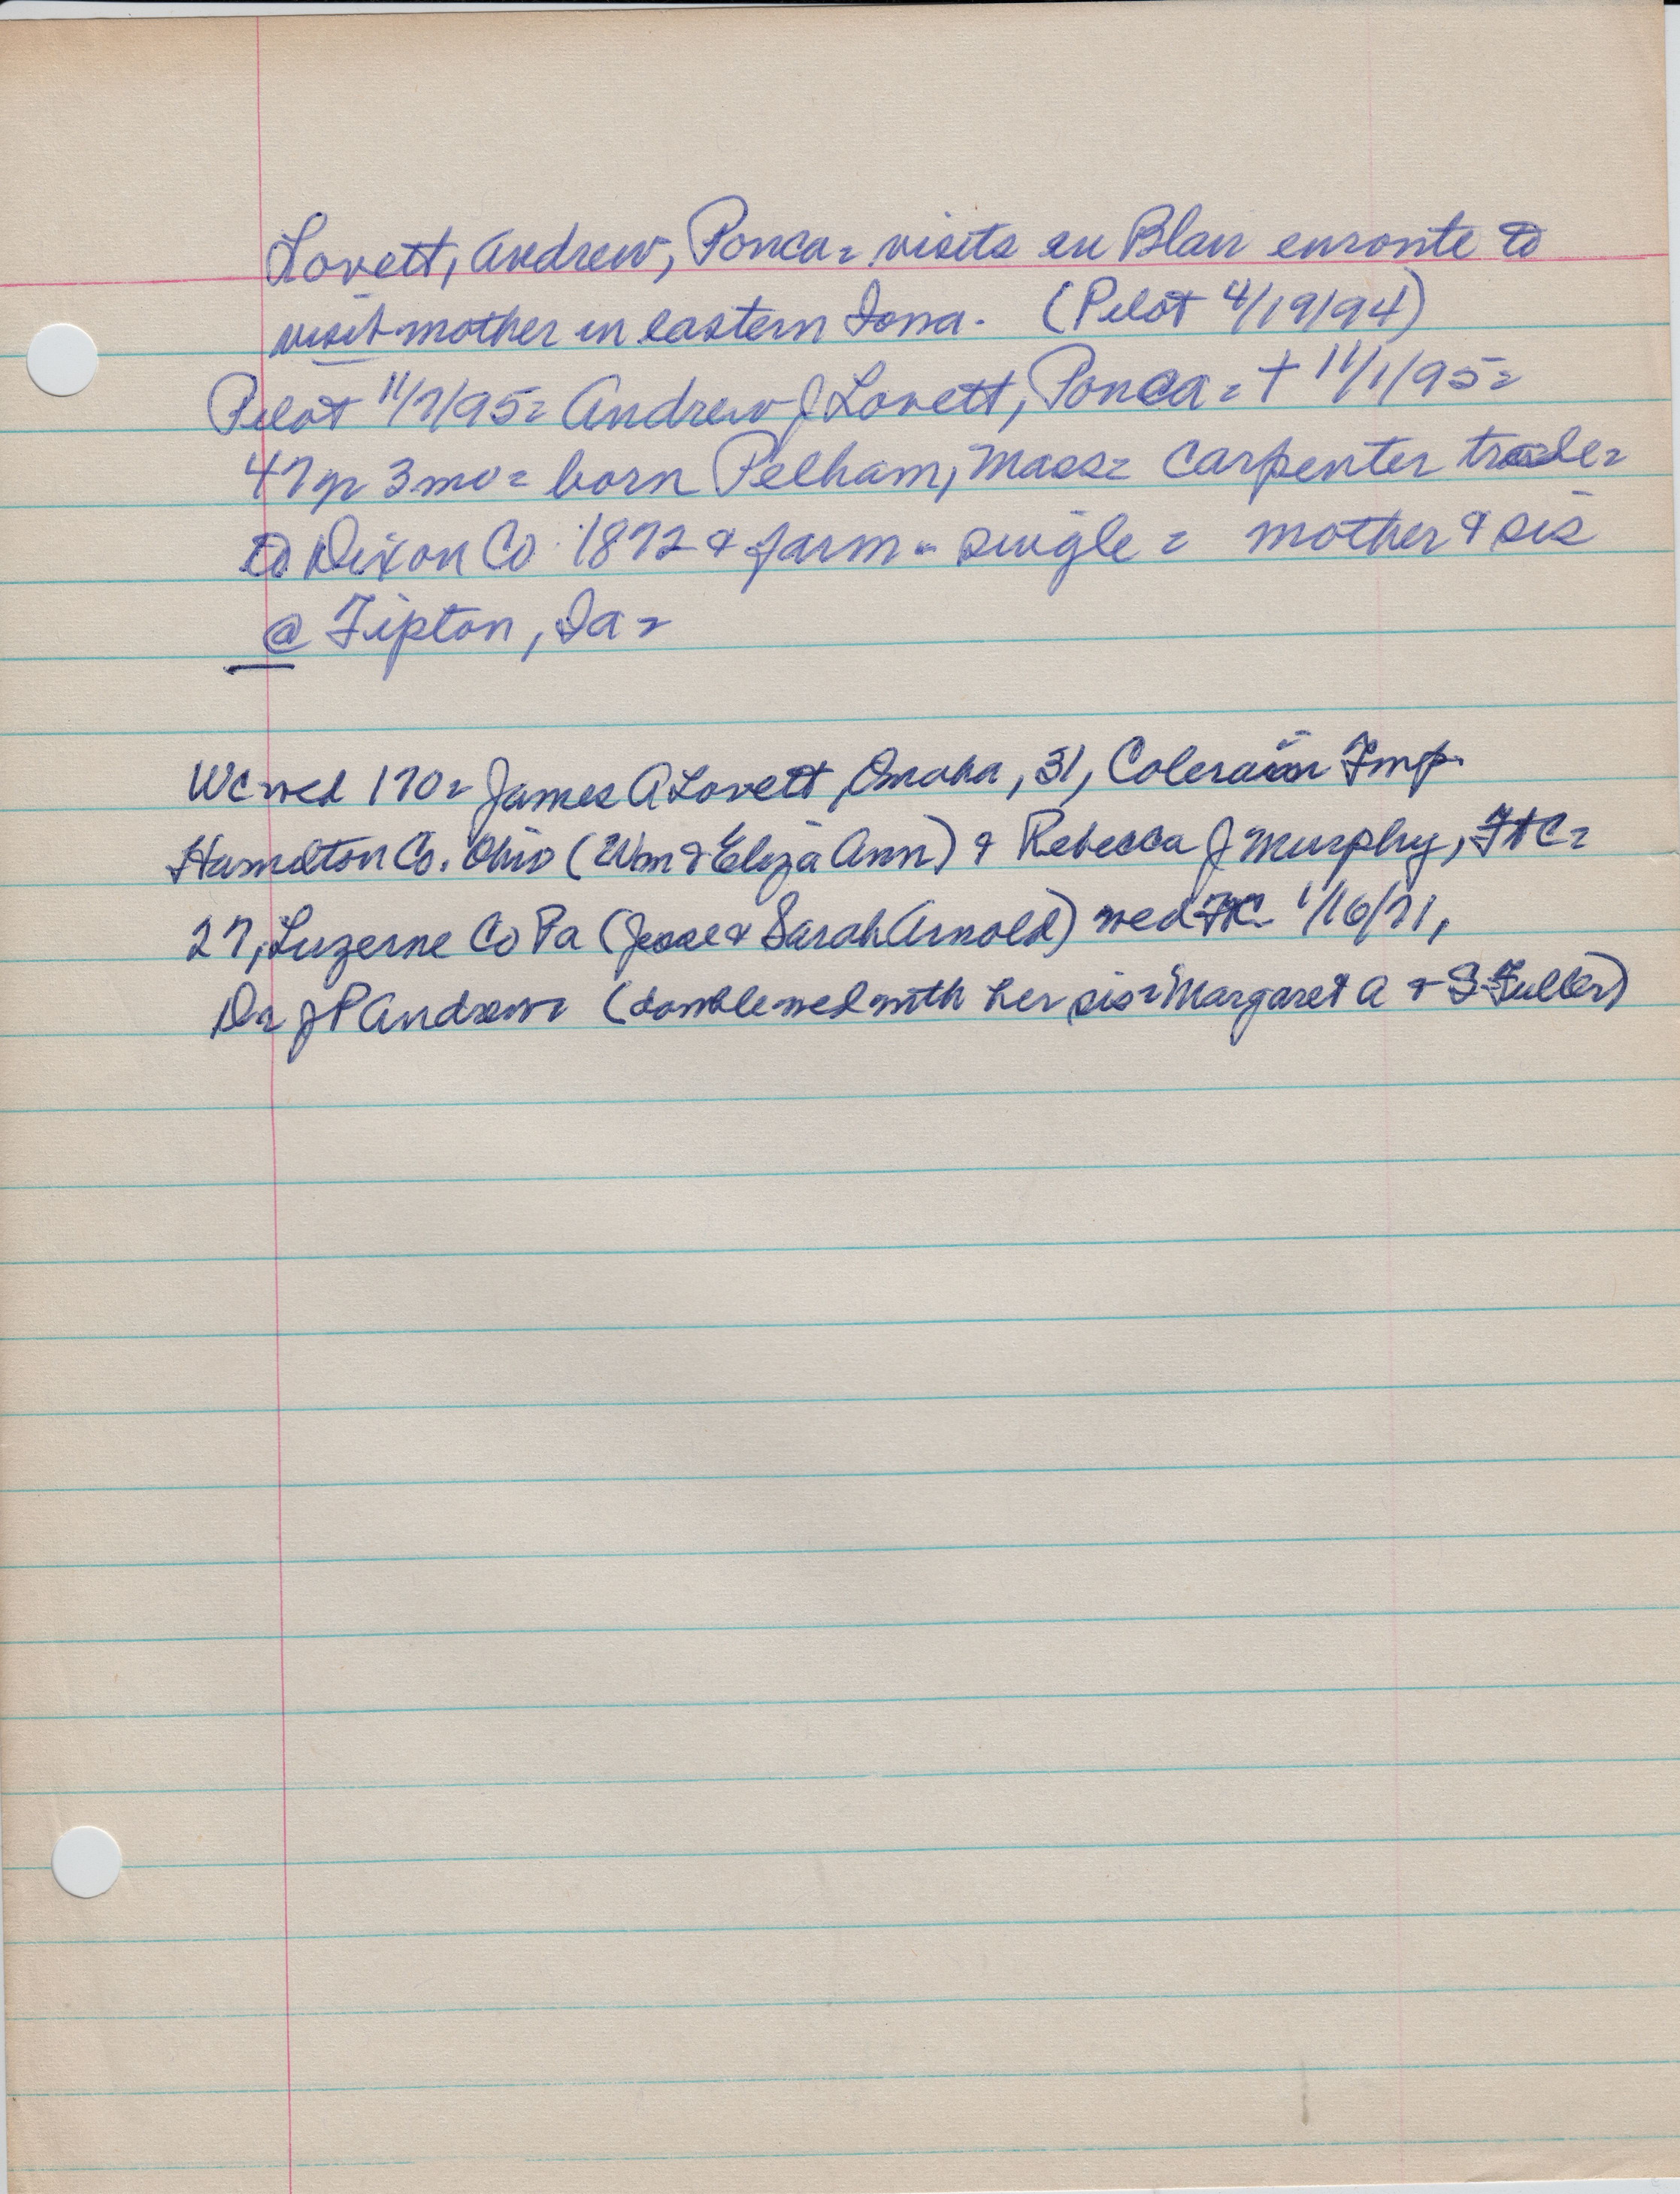 Lovett, Andrew, Ponca = visits in Blair enroute to
visit mother in eastern Iowa. (Pilot 4/19/94)
Pilot 11/7/95 = Andrew J Lovett, Ponca = + 11/1/95 =
47 yr 3 mo = born Pelham, Mass = carpenter trade =
to Dixon Co 1872 & farm = single = mother & sis
@ Tipton, Ia =
WC wed 170 = James A Lovett, Omaha, 31, Colerain Twp.
Hamilton Co. Ohio (Wm & Eliza Ann) & Rebecca J Murphy, FtC =
27, Luzerne Co Pa (Jesse & Sarah Arnold) wed FtC 1/16/71,
Dr J P Andrew = (double wed with her sis = Margaret A & S Fuller)